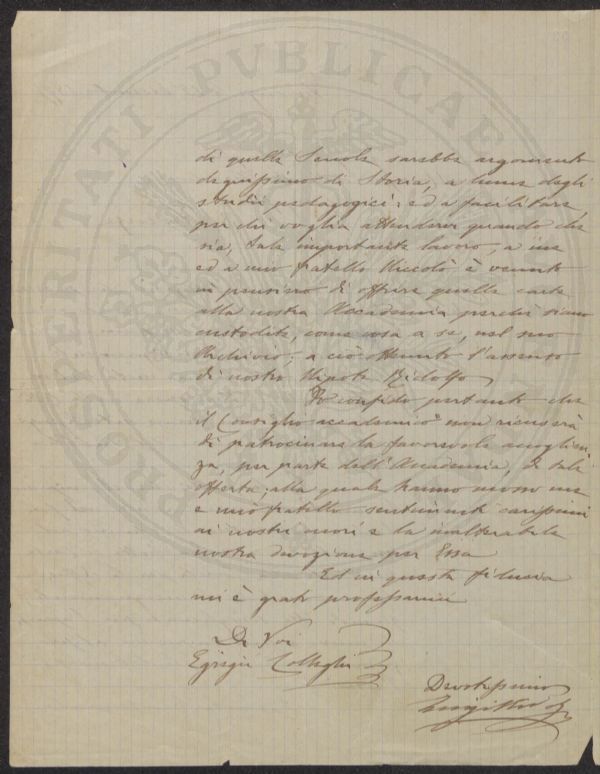 di quella Scuola sarebbe argomento
degnissimo di Storia, a lume degli
studii pedagogici: ed a facilitare,
per chi voglia attendervi quando che
sia, tale importante lavoro, a me
ed a mio fratello Niccolò è venuto
in pensiero di offrire quelle carte
alla nostra Accademia perchè siano
custodite, come cosa a se, nel suo
Archivio; a ciò ottenuto l'assenso
di nostro Nipote Ridolfo
Io confido pertanto che
il Consiglio accademico non ricuserà
di patrocinare la favorevole accoglien-
za, per parte dell'Accademia, di tale
offerta; alla quale hanno mosso me
e mio fratello sentimenti carissimi
ai nostri cuori e la inalterabile
nostra devozione per Essa
Ed in questa fiducia
mi è grato professarmi
Di Voi
Egregii Colleghi
Devotissimo
PROSPERITATI PUBLICAE